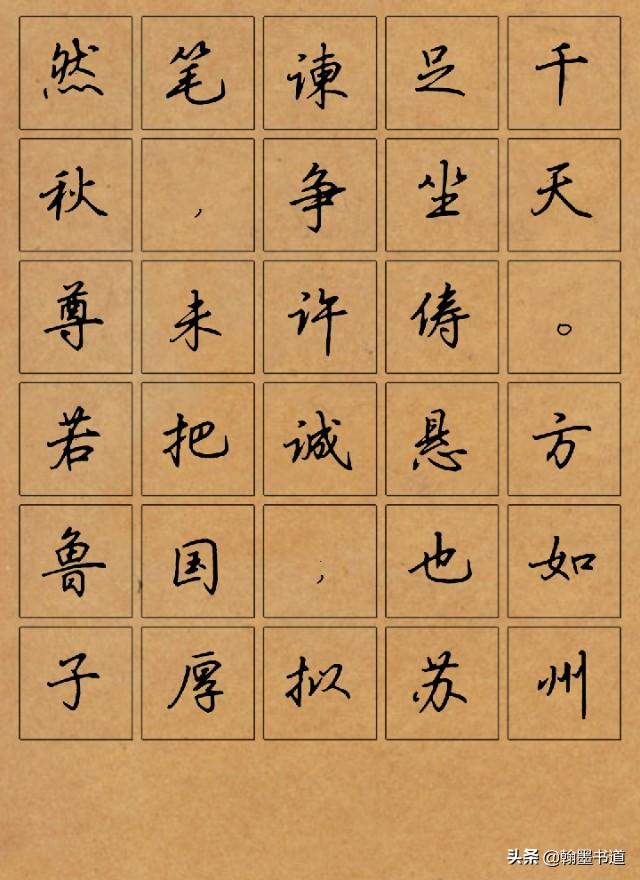 然笔谏足千
秋，争坐天
尊未许俦。
若把诚悬方
鲁国，也如
子厚拟苏州
头条 @翰墨书道